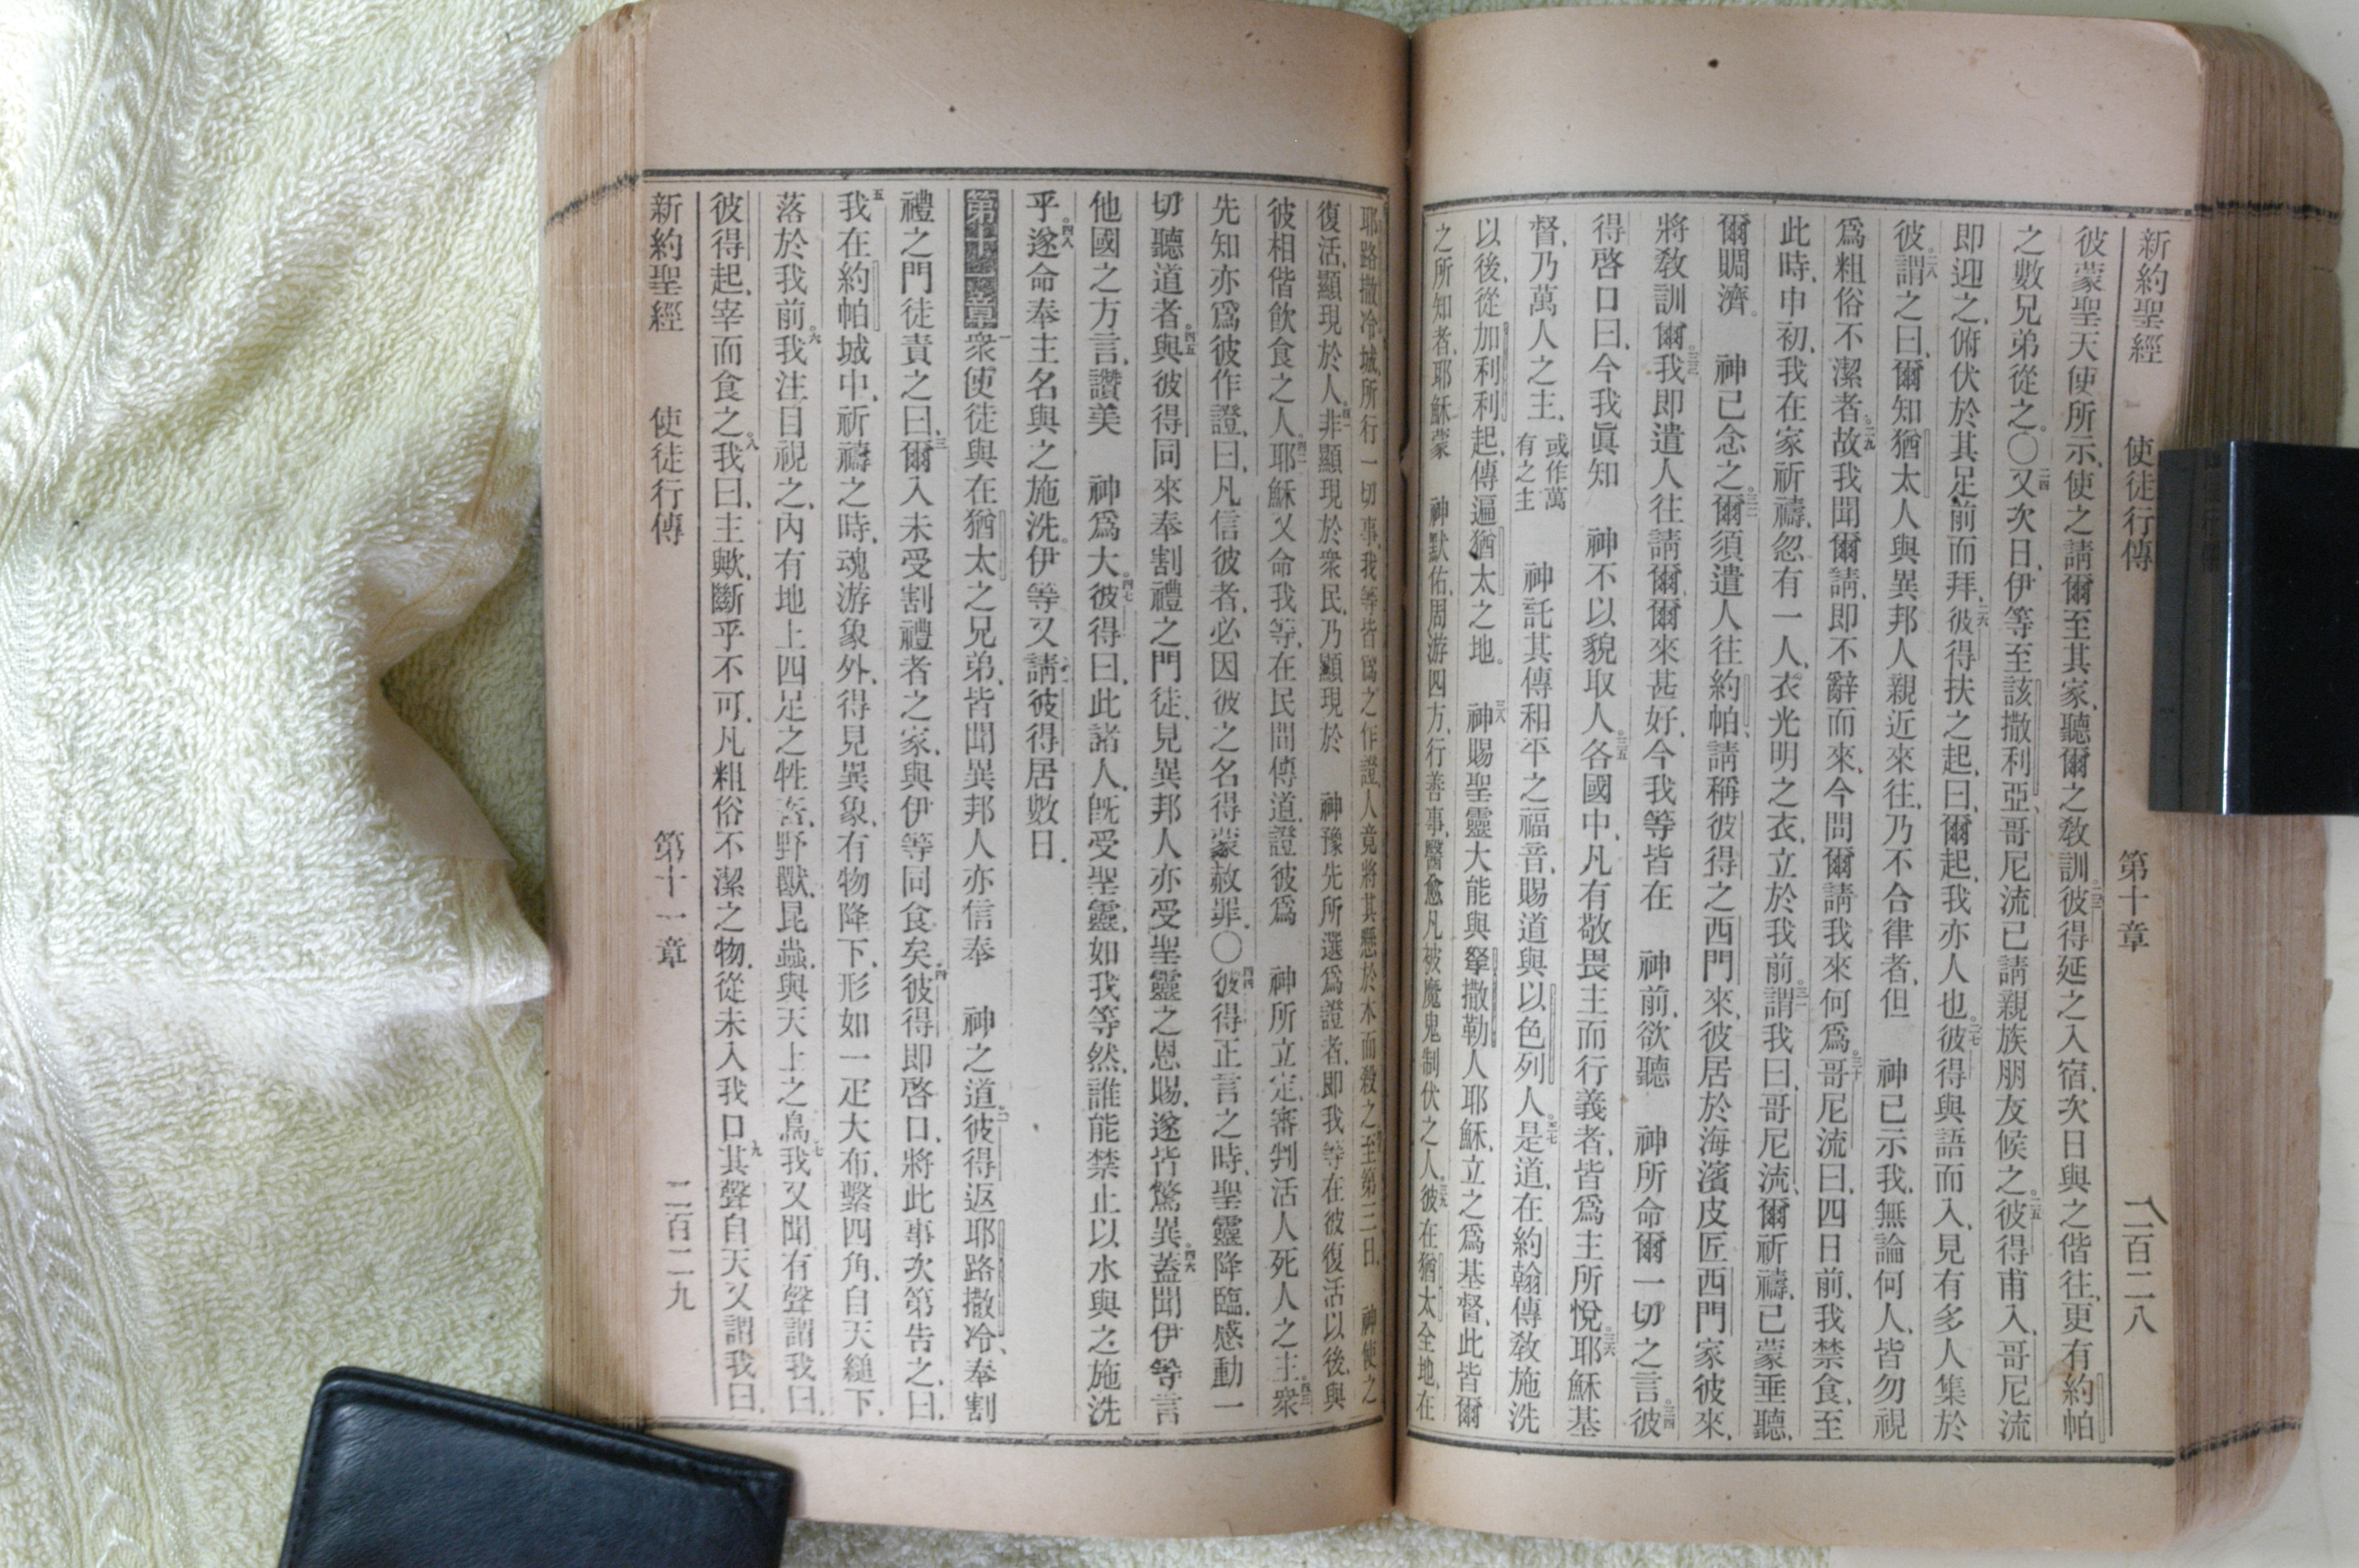 新約聖經　使徒行傳　第十章　二百二八
彼蒙聖天使所示、使之請爾至其家、聽爾之敎訓、二三彼得延之入宿、次日與之偕往、更有約帕
之數兄弟從之。〇二四又次日、伊等至該撒利亞、哥尼流已請親族朋友候之。二五彼得甫入、哥尼流
即迎之、俯伏於其足前而拜、二六彼得扶之起、曰、爾起、我亦人也。二七彼得與語而入、見有多人集於
彼。二八謂之曰、爾知猶太人與異邦人親近來往、乃不合律者、但　神已示我、無論何人、皆勿視
爲粗俗不潔者。二九故我聞爾請、即不辭而來、今問爾請我來何爲。三十哥尼流曰、四日前、我禁食、至
此時、申初、我在家祈禱、忽有一人、衣光明之衣、立於我前、三一謂我曰、哥尼流、爾祈禱、已蒙垂聽、
爾賙濟。　神已念之。三二爾須遣人往約帕、請稱彼得之西門來、彼居於海濱皮匠西門家、彼來、
將敎訓爾。三三我即遣人往請爾、爾來甚好、今我等皆在　神前、欲聽　神所命爾一切之言。三四彼
得啓口曰、今我眞知　神不以貌取人、三五各國中、凡有敬畏主而行義者、皆爲主所悅、三六耶穌基
督、乃萬人之主、或作萬有之主　神託其傳和平之福音、賜道與以色列人。三七是道、在約翰傳敎施洗
以後、從加利利起、傳遍猶太之地。三八神賜聖靈大能與拏撒勒人耶穌、立之爲基督、此皆爾
之所知者、耶穌蒙　神默佑、周游四方、行善事、醫愈凡被魔鬼制伏之人、三九彼在猶太全地、在
耶路撒冷城、所行一切事、我等皆爲之作證、人竟將其懸於木而殺之、四十至第三日、　神使之
復活、顯現於人、四一非顯現於衆民、乃顯現於　神豫先所選爲證者、即我等在彼復活以後、與
彼相偕飮食之人、四二耶穌又命我等、在民間傳道、證彼爲　神所立定、審判活人死人之主、四三衆
先知亦爲彼作證、曰、凡信彼者、必因彼之名得蒙赦罪。〇四四彼得正言之時、聖靈降臨、感動一
切聽道者。四五與彼得同來奉割禮之門徒、見異邦人亦受聖靈之恩賜、遂皆驚異。四六蓋聞伊等言
他國之方言、讚美　神爲大。四七彼得曰、此諸人、旣受聖靈、如我等然、誰能禁止以水與之施洗
乎。四八遂命奉主名與之施洗。伊等又請彼得居數日、
第十一章一衆使徒與在猶太之兄弟、皆聞異邦人亦信奉　神之道。二彼得返耶路撒冷、奉割
禮之門徒責之曰、三爾入未受割禮者之家、與伊等同食矣。四彼得即啓口、將此事次第告之、曰、
五我在約帕城中、祈禱之時、魂游象外、得見異象、有物降下、形如一疋大布、繫四角、自天縋下、
落於我前。六我注目視之、內有地上四足之牲畜、野獸、昆蟲、與天上之鳥、七我又聞有聲謂我曰、
彼得起、宰而食之。八我曰、主歟、斷乎不可、凡粗俗不潔之物、從未入我口、九其聲自天又謂我曰、
新約聖經　使徒行傳　第十一章　二百二九